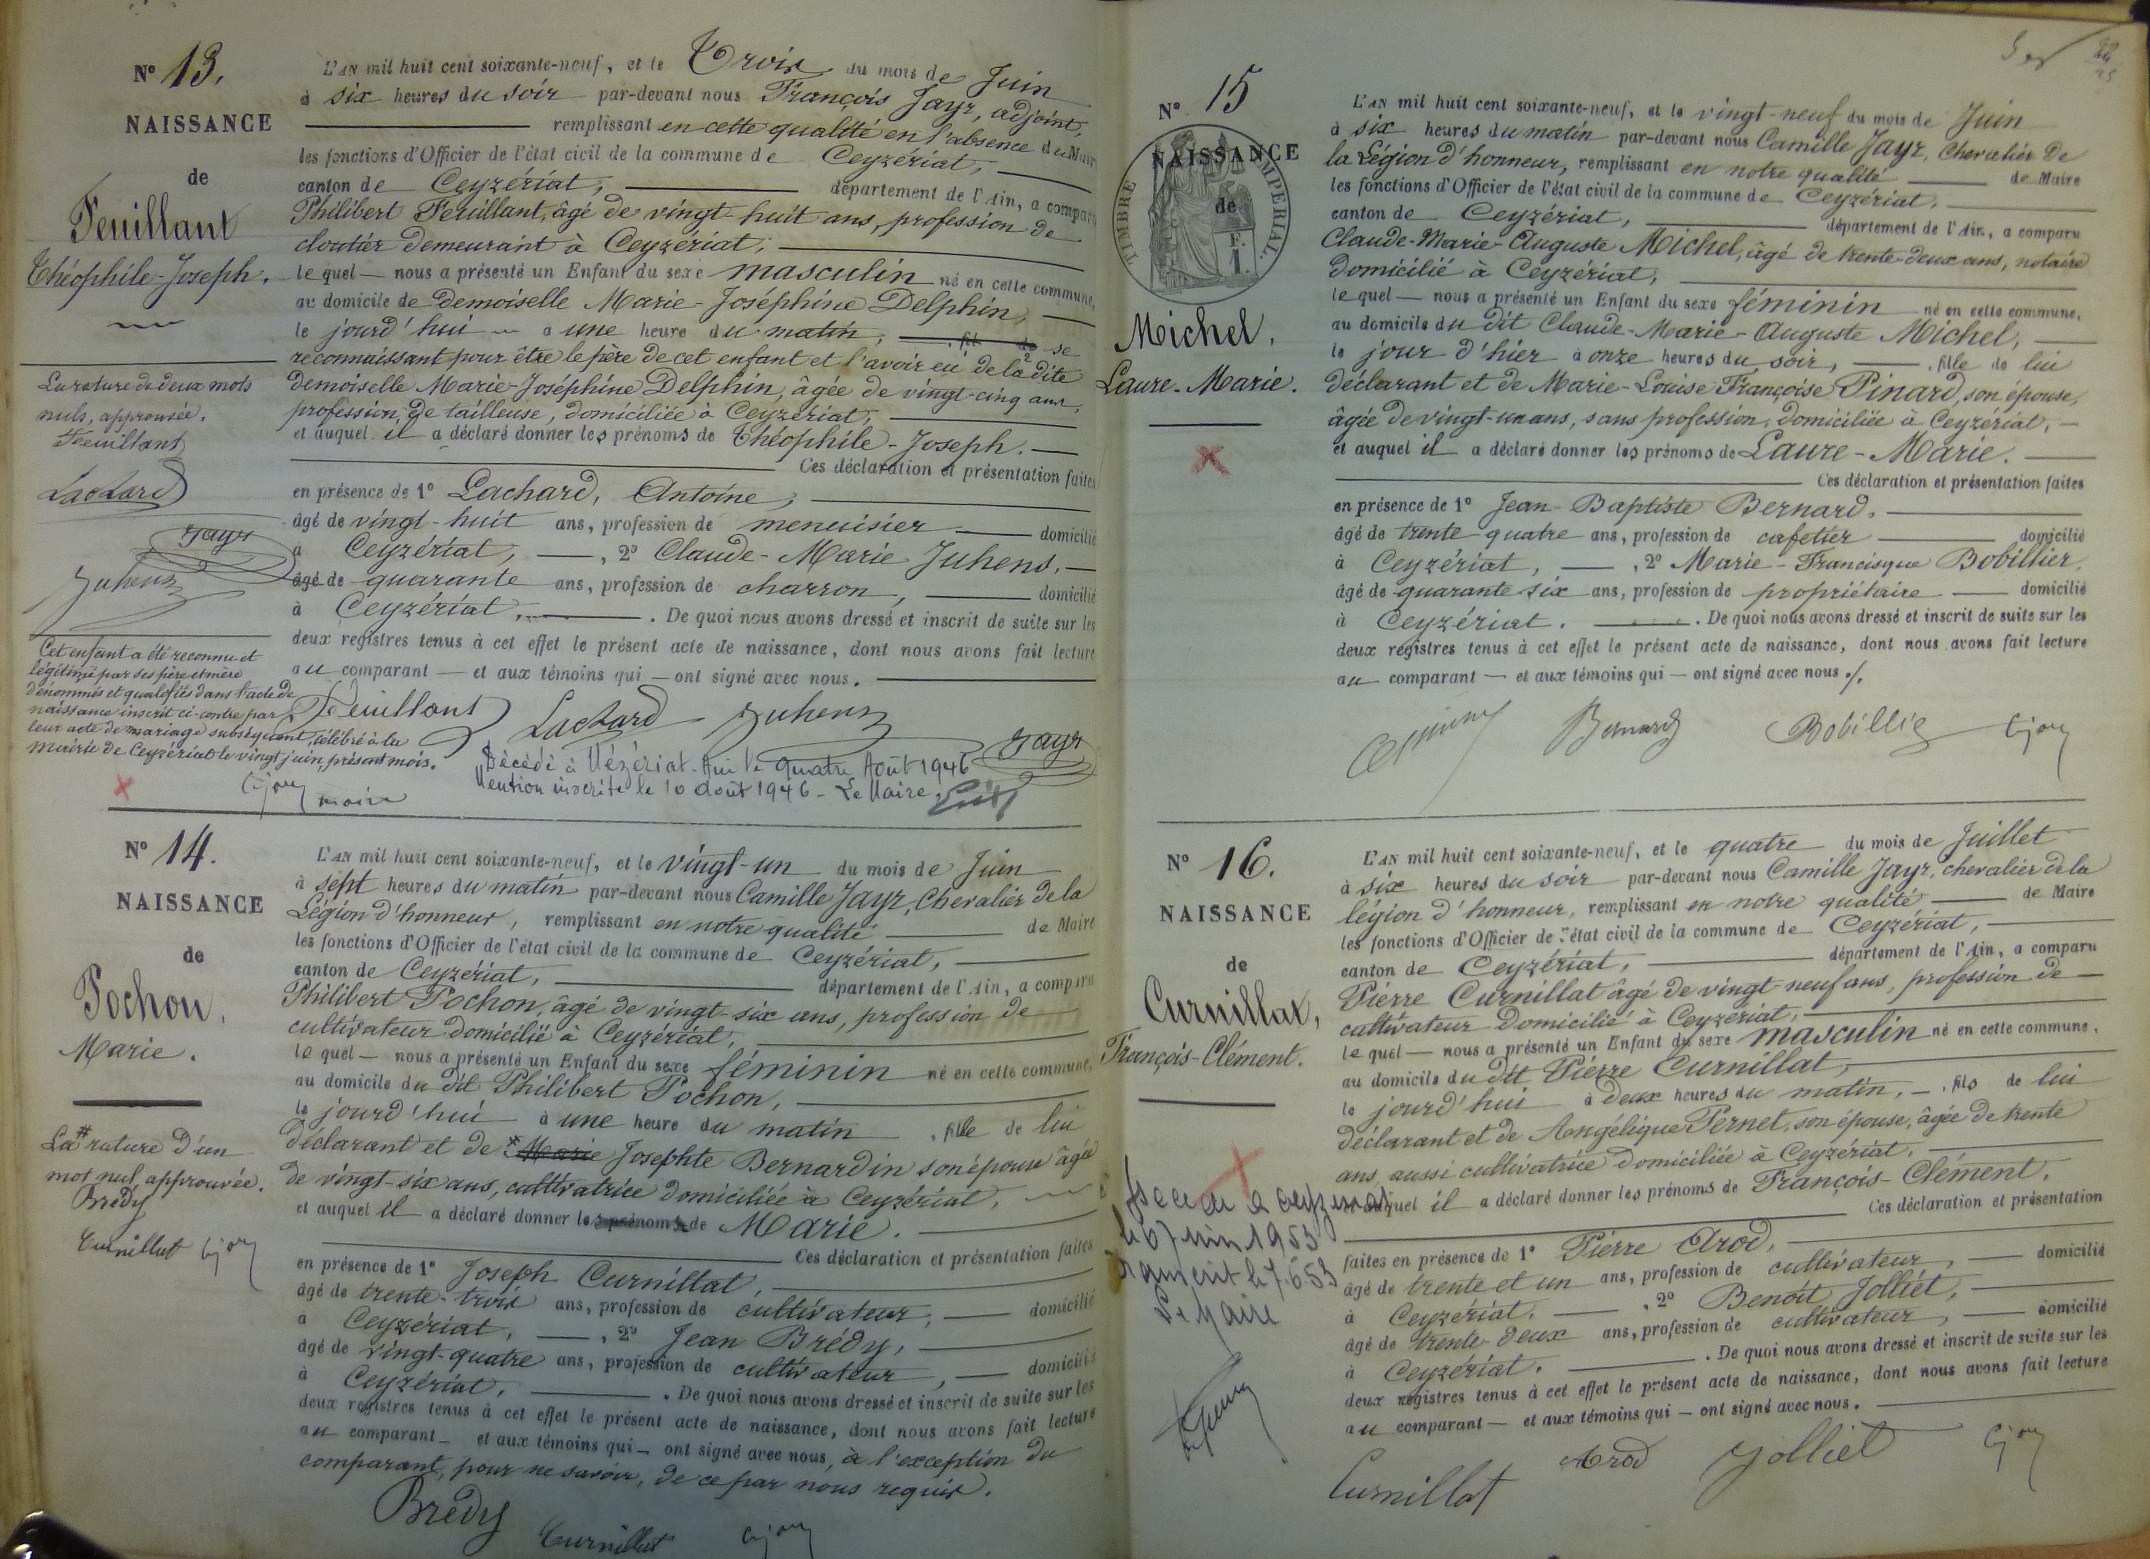 N° 13.
NAISSANCE
de
Feuillant
Théophile-Joseph.
La rature de deux mots
nuls, approuvée.
Feuillant
Lachard
Jayr
Juhens
Cet enfant a été reconnu et
légitimé par ses père et mère
dénommés et qualifiés dans l'acte de
naissance inscrit ci-contre par
leur acte de mariage subséquent, célébré à la
Mairie de Ceyzériat le vingt juin, présent mois.
maire
L'AN mil huit cent soixante-neuf, et le Trois du mois de Juin
à six heures du soir par-devant nous François Jayr, adjoint,
remplissant en cette qualité en l'absence du Maire
les fonctions d'Officier de l'état civil de la commune de Ceyzériat,
canton de Ceyzériat, département de l'Ain, a comparu
Philibert Feuillant, âgé de vingt-huit ans, profession de
cloutier demeurant à Ceyzériat,
le quel nous a présenté un Enfant du sexe masculin né en cette commune,
au domicile de demoiselle Marie-Joséphine Delphin,
le jourd'hui à une heure du matin, fils de se
reconnaissant pour être le père de cet enfant et l'avoir eu de la dite
demoiselle Marie-Joséphine Delphin, âgée de vingt-cinq ans,
profession de tailleuse, domiciliée à Ceyzériat,
et auquel il a déclaré donner les prénoms de Théophile-Joseph.
Ces déclaration et présentation faites
en présence de 1° Lachard, Antoine,
âgé de vingt-huit ans, profession de menuisier domicilié
à Ceyzériat, , 2° Claude-Marie Juhens,
âgé de quarante ans, profession de charron, domicilié
à Ceyzériat, . De quoi nous avons dressé et inscrit de suite sur les
deux registres tenus à cet effet le présent acte de naissance, dont nous avons fait lecture
au comparant et aux témoins qui ont signé avec nous.
Feuillant Lachard Juhens Jayr
Décédé à Vézériat. Ain le quatre Août 1946
Mention inscrite le 10 août 1946 - Le Maire,
N° 14.
NAISSANCE
de
Pochon,
Marie.
La rature d'un
mot nul, approuvée.
Brédy
Curnillat
L'AN mil huit cent soixante-neuf, et le vingt-un du mois de Juin
à sept heures du matin par-devant nous Camille Jayr, Chevalier de la
Légion d'honneur, remplissant en notre qualité de Maire
les fonctions d'Officier de l'état civil de la commune de Ceyzériat,
canton de Ceyzériat, département de l'Ain, a comparu
Philibert Pochon, âgé de vingt-six ans, profession de
cultivateur domicilié à Ceyzériat,
le quel nous a présenté un Enfant du sexe féminin né en cette commune,
au domicile du dit Philibert Pochon,
le jourd'hui à une heure du matin , fille de lui
déclarant et de * Marie Josephte Bernardin son épouse âgée
de vingt-six ans, cultivatrice domiciliée à Ceyzériat,
et auquel il a déclaré donner les prénoms de Marie.
Ces déclaration et présentation faites
en présence de 1° Joseph Curnillat,
âgé de trente-trois ans, profession de cultivateur, domicilié
à Ceyzériat, , 2° Jean Brédy,
âgé de vingt-quatre ans, profession de cultivateur, domicilié
à Ceyzériat, . De quoi nous avons dressé et inscrit de suite sur les
deux registres tenus à cet effet le présent acte de naissance, dont nous avons fait lecture
au comparant et aux témoins qui ont signé avec nous, à l'exception du
comparant, pour ne savoir, de ce par nous requis.
Brédy Curnillat
N° 15
NAISSANCE
de
TIMBRE IMPERIAL
F.
1.
Michel,
Laure-Marie.
L'AN mil huit cent soixante-neuf, et le vingt-neuf du mois de Juin
à six heures du matin par-devant nous Camille Jayr, Chevalier de
la Légion d'honneur, remplissant en notre qualité de Maire
les fonctions d'Officier de l'état civil de la commune de Ceyzériat,
canton de Ceyzériat, département de l'Ain, a comparu
Claude-Marie-Auguste Michel, âgé de trente-deux ans, notaire
domicilié à Ceyzériat,
le quel nous a présenté un Enfant du sexe féminin né en cette commune,
au domicile du dit Claude-Marie-Auguste Michel,
le jour d'hier à onze heures du soir, , fille de lui
déclarant et de Marie-Louise Françoise Pinard, son épouse,
âgée de vingt-un ans, sans profession, domiciliée à Ceyzériat,
et auquel il a déclaré donner les prénoms de Laure-Marie.
Ces déclaration et présentation faites
en présence de 1° Jean-Baptiste Bernard,
âgé de trente quatre ans, profession de cafetier domicilié
à Ceyzériat, , 2° Marie-Francisque Bobillier,
âgé de quarante six ans, profession de propriétaire domicilié
à Ceyzériat. . De quoi nous avons dressé et inscrit de suite sur les
deux registres tenus à cet effet le présent acte de naissance, dont nous avons fait lecture
au comparant et aux témoins qui ont signé avec nous ./.
Bernard Bobillier
N° 16.
NAISSANCE
de
Curnillat,
François-Clément.
Décédé à Ceyzériat
le 6 Juin 1953
transcrit le 7.6.53
Le Maire
L'AN mil huit cent soixante-neuf, et le quatre du mois de Juillet
à six heures du soir par-devant nous Camille Jayr, chevalier de la
légion d'honneur, remplissant en notre qualité de Maire
les fonctions d'Officier de l'état civil de la commune de Ceyzériat,
canton de Ceyzériat, département de l'Ain, a comparu
Pierre Curnillat âgé de vingt-neuf ans, profession de
cultivateur domicilié à Ceyzériat,
le quel nous a présenté un Enfant du sexe masculin né en cette commune,
au domicile du dit Pierre Curnillat,
le jourd'hui à deux heures du matin, , fils de lui
déclarant et de Angélique Pernet, son épouse, âgée de trente
ans, aussi cultivatrice domiciliée à Ceyzériat,
et auquel il a déclaré donner les prénoms de François-Clément.
Ces déclaration et présentation
faites en présence de 1° Pierre Arod,
âgé de trente et un ans, profession de cultivateur, domicilié
à Ceyzériat, , 2° Benoît Jolliet,
âgé de trente-deux ans, profession de cultivateur, domicilié
à Ceyzériat. . De quoi nous avons dressé et inscrit de suite sur les
deux registres tenus à cet effet le présent acte de naissance, dont nous avons fait lecture
au comparant et aux témoins qui ont signé avec nous.
Curnillat Arod Jolliet